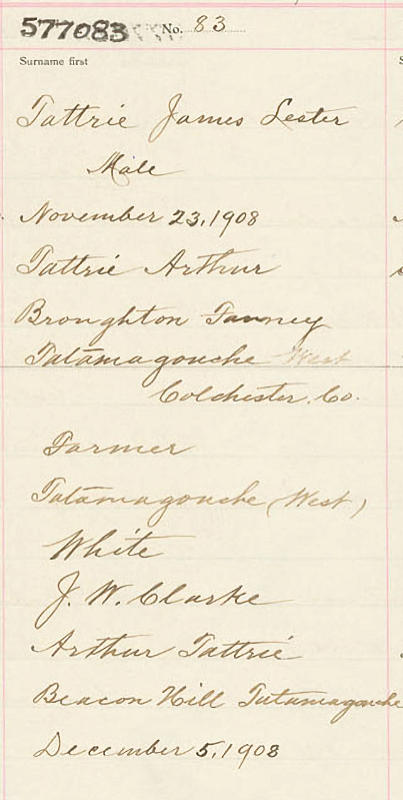 577083 No. 83
Surname first
Tattrie James Lester
Male
November 23, 1908
Tattrie Arthur
Broughton Fanney
Tatamagouche West
Colchester. Co.
Farmer
Tatamagouche (West)
White
J. W. Clarke
Arthur Tattrie
Beacon Hill Tatamagouche
December 5, 1908